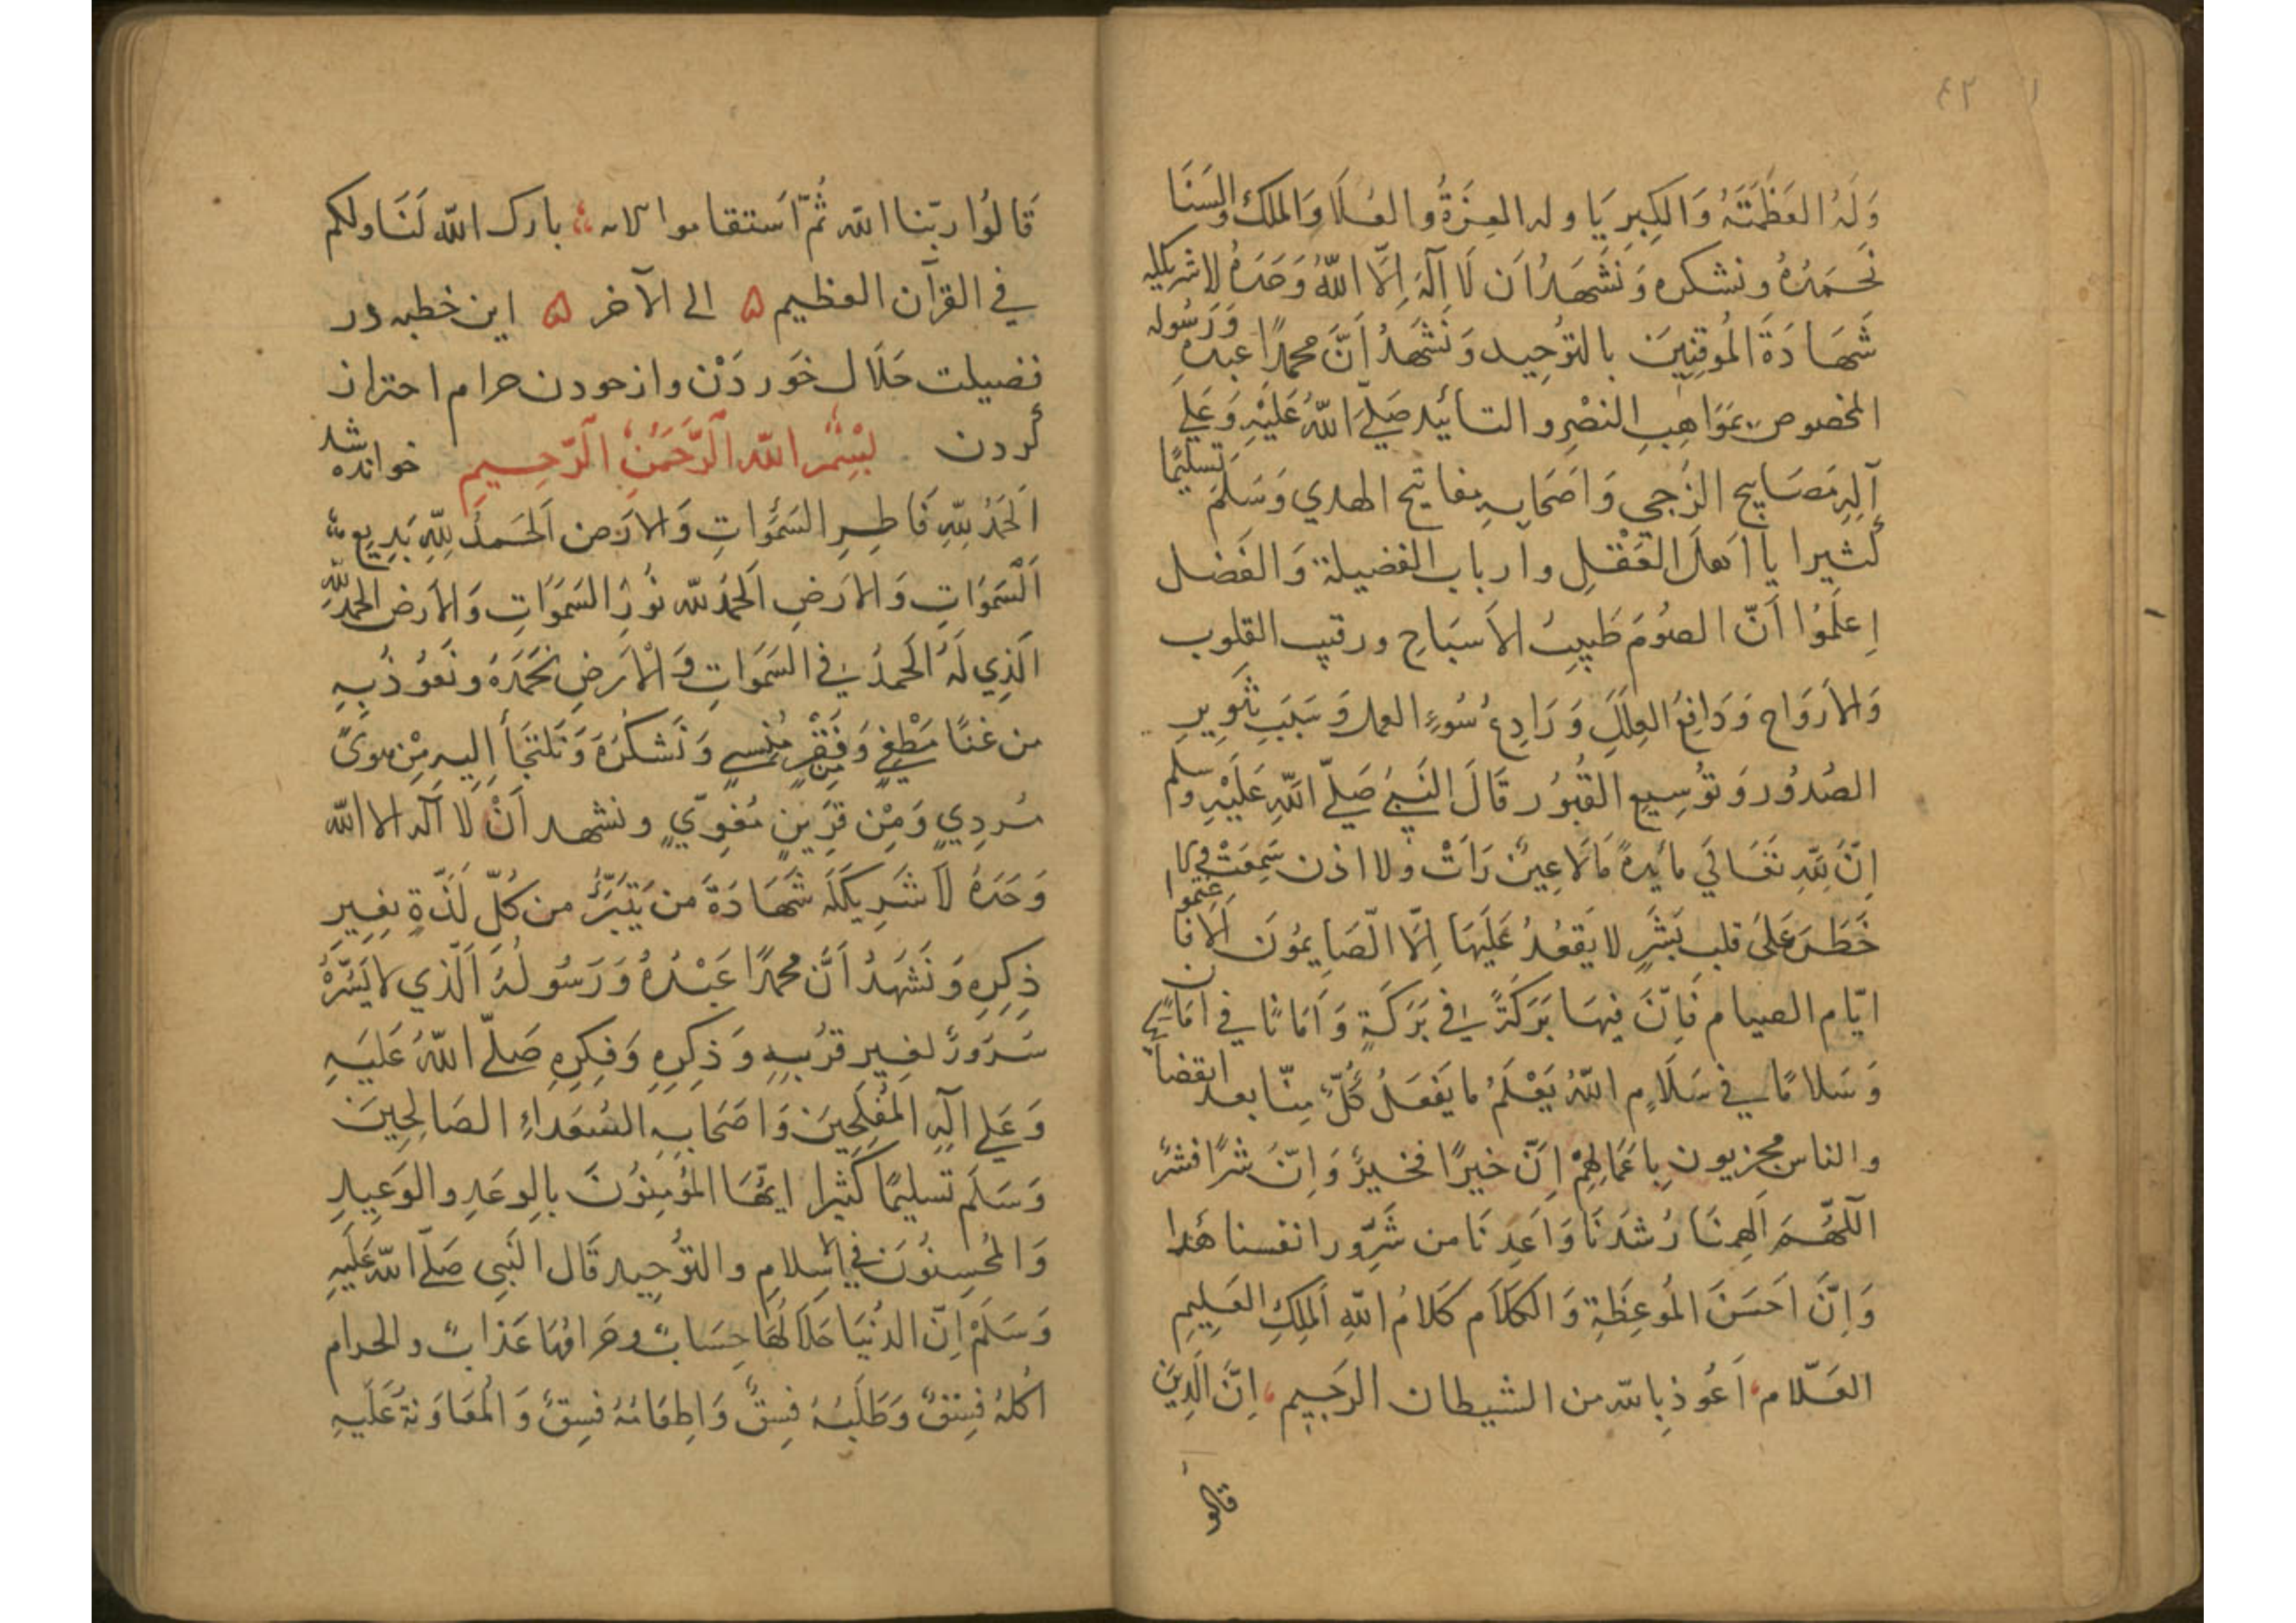 ٤٢
وَلَهُ العَظَمَتَهُ وَالكِبرِيَا وله العِزَةُ والعُلَا وَالملك والسَنَا
نَحمَدُهُ ونشكره وَنَشهَدُ اَن لَا آلَهَ اِلَّا اللّهُ وَحَدَهُ لا شريكله
شَهَادَةَ المُوقِنِينَ بالتوُحِيد وَنَشَهدُ اَنَّ محمدًا عبدهِ وَرَسُوله
المخصوص بمَوَاهِبِ النصْرِ والتائيد صَلَّي اللّهُ عَلَيْهِ وَعَلي
آلِهِ مَصَابيح الدُجي وَاصَحَابِهِ مفاتيح الهدي وَسَلَّمَ تَسليمًا
كثيرا يا اَهلَ العَقْلِ وارباب الفضيلة وَالفَضل
اِعلَمُوا اَنّ الصَوُمَ طَبِيبُ الاَسبَاحِ ورقيب القلوب
وَالاَروَاح وَدَافِعُ العِلَلِ وَرَادِعُ سُوءِ العمل وَسَبَبِ تنَوِيرِ
الصُدُور وَتوُسِيعِ القُبوُر قَالَ النَبيُ صَلَّي اللّهِ عَلَيْهِ وسلم
اِنَّ لِلّهِ تَعَالَي مائدةً مَا لَا عِينٌ رَاتْ ولا اذن سَمِعَتْ ولا
خَطَرَ عَلي قلب بَشَرٍ لا يَقعُدُ عَلَيهَا اِلاَّ الصَايمُونَ اَلَا فَاغتَنموا
ايّام الصيام فَاِنَّ فيهَا بَرَكَةً في بَرَكَةٍ وَاَمَانًا في اَمَانٍ
وَسَلامًا في سَلَامٍ اللّهُ يَعْلَمُ ما يَفعَلُ كُلٌّ مِنّا بعد انقضائه
والناس مجزيون بِاعَمَالِهِمْ اِنّ خيرًا فخيرٌ وَاِنّ شرًا فشرٌ
اَللّهُمَ اَلهِمنَا رُشدَنَا وَاَعِدنَا من شَرّور انفسنا هَذا
وَاِنَّ اَحَسَنَ المُوعِظَةِ وَالكلَاَم كَلامُ اللّهِ اَلملِكِ العَلِيمِ
العَلّام اَعُوذ بالله من الشيطان الرجيم اِنَّ الَّذِينَ
قالوا
قَالوُا ربّنا الله ثُمَّ اَستقاموا الايه بارك اللّه لَنَا ولكم
في القرآن العظيم ۵ الي الآخر ۵ اين خطبه در
فضيلت حَلَال خَوردَنْ واز خودن حرام احتراز
كردن بِسْمِ اللّه اَلرَّحَمَنِ اَلرَّحِيمِ خوانده شد
اَلحَمدُ لِلّهِ فَاطِرِ السَمَوَاتِ وَالاَرَض اَلحَمدُ لِلّهِ بَدِيعِ
اَلسَموَاتِ وَالاَرَضِ اَلحَمدُ للّه نُورُ السَمَوَاتِ وَالاَرَض الحمدُ للّهِ
الَذِي لَهُ الحَمدُ في السَمَوَاتِ وَالْاَرَضِ نَحمَدَهُ ونَعُوذُ بِهِ
من غنًا مَطْغيٍ وَفَقْرٍ مُنسيٍ وَنَشكُرُهَ وَنَلتجَأ اِليهِ مِنْ هوًي
مُردِيٍ وَمِن قَرِينٍ مُغوِيٍّ ونشهد اَنْ لا آله الا اللّه
وَحَدَهُ لاَ شَرِيكَلَه شَهَادَةَ مَن يَتَبَرَّءُ من كُلِّ لَذّةٍ بغَيرِ
ذِكرِهِ وَنَشَهَدُ اَنَّ محمدًا عَبْدُهُ وَرَسُولُهُ اَلّذي لا يَسُرّهُ
سُرَورٌ لغير قرُبِهِ وَذِكِرِهِ وَفِكرِهِ صَلَّي اللّهُ عَليَهِ
وَعَلي آلِهِ المُفلِحِينَ وَاصَحَابِهِ السُعَداءِ الصَالِحِينَ
وَسَلَم تسليمًا كَثيرا ايّهَا المُؤمِنوُنَ بالوِعَدِ والوَعِيدِ
وَالمُحسِنوُنَ في الاِسلامِ والتوُحِيد قَال النَبي صَلَّي اللّه عَلَيَهِ
وَسَلَّمْ اِنّ الدُنيَا حَلَالُهَا حِسَابٌ وحَرَامُهَا عَذَابٌ والحرام
اَكلهُ فِسقٌ وَطَلَبُهُ فِسقٌ وَاِطعَامُهُ فسِقٌ وَالمُعَاوَنةُ عَلَيهِ